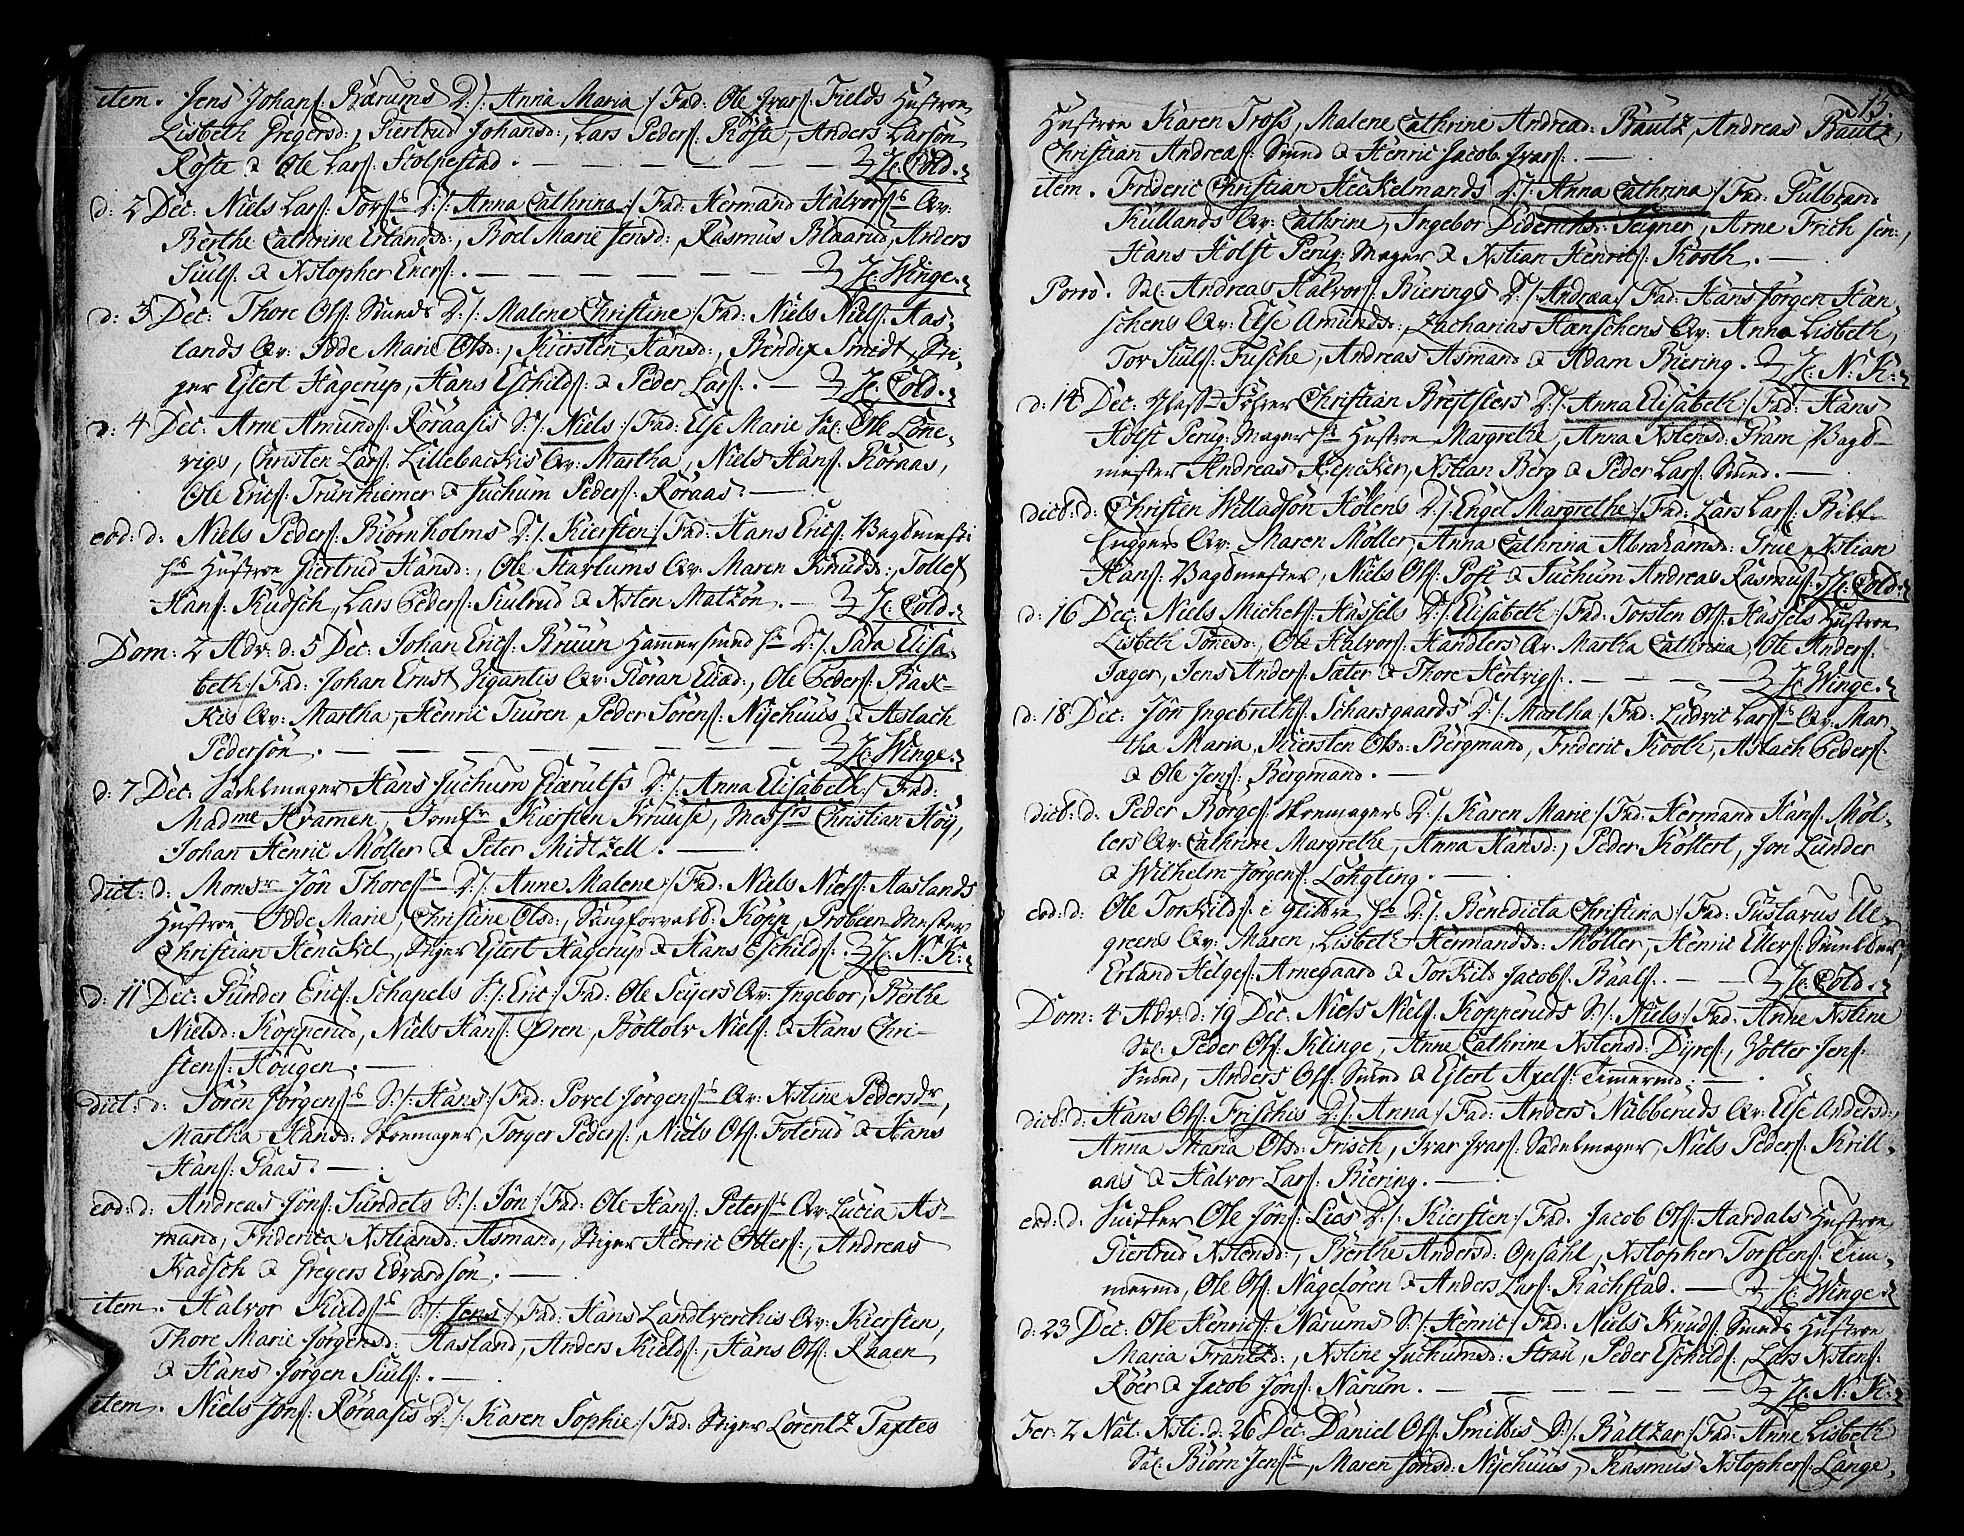 item. Jens Johans: Bærums D:/: Anna Maria :/ Fad: Ole Ivars: Fields Hustroe
Lisbeth Gregersd:, Giertrud Johansd:, Lars Peders: Röste, Anders Larsön
Röste & Ole Lars: Stolpestad. — H: Cold.
d: 2 Dec: Niels Lars: Tors D:/: Anna Cathrina :/ Fad: Hermand Halvors Qv:
Berthe Cathrine Erlandsd:, Boel Marie Jensd:, Rasmus Blaarud, Anders
Siuls: & Xstopher Eners:. — H: Winge.
d: 3 Dec: Thore Ols: Smeds D:/: Malene Christine :/ Fad: Niels Niels: Aas-
lands Qv: Idde Marie Olsd:, Kiersten Hansd:, Bendix Smidt, Sti-
ger Ejlert Hagerup, Hans Eschilds: & Peder Lars:. — H: Cold.
d: 4 Dec: Arne Amunds: Röraasis S:/: Niels :/ Fad: Else Marie Sal: Ole Löne-
vigs, Christen Lars: Lillebackis Qv: Martha, Niels Hans: Röraas,
Ole Erics: Trunhiemer & Juchum Peders: Röraas. —
eod: d: Niels Peders: Biörnholms D:/: Kiersten :/ Fad: Hans Erics: Bagdmesters
Hustroe Giertrud Hansd:, Ole Starlums Qv: Maren Knudsd:, Tollef
Hans: Kudsch, Lars Peders: Siulrud & Xsten Matzön. — H: Cold.
Dom: 2 Adv: d: 5 Dec: Johan Erics: Bruun Hammersmed D:/: Sara Elisa-
beth :/ Fad: Johan Ernst Gigantis Qv: Göran Eliæd:, Ole Peders: Bak-
kes Qv: Martha, Henric Turen, Peder Sörens: Nyehuus & Aslach
Pedersön. — H: Winge.
d: 7 Dec: Sadelmager Hans Juchum Gæruths D:/: Anna Elisabeth :/ Fad:
Madme Kramen, Jomfr Kiersten Kruuse, Messrs Christian Höy,
Johan Henric Möller & Peter Midtzell. —
dict: d: Monsr Jôn Thores D:/: Anne Malene :/ Fad: Niels Niels: Aaslands
Hustroe Idde Marie, Christine Olsd:, Sangforvalt: Kopp, Probeer Mester
Christian Henckel, Stiger Ejlert Hagerup & Hans Eschilds:. H: N: K:
d: 11 Dec: Gunder Erics: Schapels S:/: Eric :/ Fad: Ole Sejers Qv: Ingebor, Berthe
Nielsd: Kopperud, Niels Hans: Ören, Bottolv Niels: & Hans Chri-
stens: Hougen. —
dict: d: Sören Jörgens S:/: Hans :/ Fad: Povel Jörgens Qv: Xstine Pedersdr,
Martha Hansd: Skoemager, Torger Peders:, Niels Ols: Foterud & Hans
Hans: Gaas. —
eod: d: Andreas Jöns: Sundets S:/: Jôn :/ Fad: Ole Hans: Peters Qv: Lucia As-
mand, Friderica Xstiansd: Asmand, Stiger Henric Otters:, Andreas
Kudsch & Gregers Edvardsön. —
item. Halvor Kields S:/: Jens :/ Fad: Hans Landtverchis Qv: Kiersten,
Thore Marie Jörgensd: Aasland, Anders Kields:, Hans Ols: Raaen
& Hans Jörgen Siuls:. —
item. Niels Jons: Röraasis D:/: Karen Sophie :/ Fad: Stiger Lorentz Taxtes
15.
Hustroe Karen Tross, Malene Cathrine Andread: Bautz, Andreas Bautz,
Christian Andreas: Smed & Henric Jacob Ivars:. —
item. Frideric Christian Heckelmands D:/: Anna Cathrina :/ Fad: Gulbrand
Kullands Qv: Cathrine, Ingebor Diderichsd: Seigner, Arne Frich sen:,
Hans Holst Peruq: Mager & Xstian Henrics: Kooth. —
Porro. Sal: Andreas Halvors: Bierings D:/: Andrea :/ Fad: Hans Jörgen Hæn
schens Qv: Else Amundsd:, Zacharias Hænschens Qv: Anna Lisbeth,
Tor Siuls: Fusche, Andreas Asmand & Adam Biering. H: N: K:
d: 14 Dec: Glass-Förer Christian Brejtslers D:/: Anna Elisabeth :/ Fad: Hans
Holst Peruq: Mager Hustroe Margrethe, Anna Xstensd: Gram, Bagd-
mester Andreas Henckler, Xstian Berg & Peder Lars: Smed. —
dict: d: Christen Willadsön Holens D:/: Engel Margrethe :/ Fad: Lars Lars: Bilt-
huggers Qv: Maren Möller, Anna Cathrina Abrahamsd: Grue, Xstian
Hans: Bagdmester, Niels Ols: Post & Juchum Andreas Rasmus: H: Cold.
d: 16 Dec: Niels Michels: Hassels D:/: Elisabeth :/ Fad: Torsten Ols: Hassels Hustroe
Lisbeth Tonesd:, Ole Halvors: Handlers Qv: Martha Cathrina, Ole Anders:
Jager, Jens Anders: Sæter & Thore Hertvigs:. — H: Winge.
d: 18 Dec: Jôn Ingebreths: Scharsgaards D:/: Martha :/ Fad: Ludvic Lars Qv: Mar-
tha Maria, Kiersten Olsd: Bergmand, Frideric Kooth, Aslach Peders:
& Ole Jens: Bergmand. —
dict: d: Peder Borges: Skoemagers D:/: Karen Marie :/ Fad: Hermand Hans: Möl-
lers Qv: Cathrine Margrethe, Anna Hansd:, Peder Kollert, Jon Lunder
& Wilhelm Jörgens: Löngting. —
eod: d: Ole Torkilds: i Glittre D:/: Benedicta Christina :/ Fad: Gustavus Ue-
greens Qv: Maren, Lisbeth Hermandsd: Möller, Henric Ellers: Smelter,
Erland Helges: Arnegaard & Torkild Jacobs: Baals:. — H: Cold.
Dom: 4 Adv: d: 19 Dec: Niels Niels: Kopperuds S:/: Niels :/ Fad: Anne Xstine
Sal: Peder Ols: Klinge, Anne Cathrine Xstensd: Dyres:, Wolter Jens:
Smed, Anders Ols: Smed & Ejlert Axels: Timermd: —
dict: d: Hans Ols: Frischis D:/: Anna :/ Fad: Anders Nubberuds Qv: Else Andersd:,
Anna Maria Olsd: Frisch, Ivar Ivars: Sadelmager, Niels Peders: Krill-
aas & Halvor Lars: Biering. —
eod: d: Smelter Ole Jöns: Lies D:/: Kiersten :/ Fad: Jacob Ols: Aardals Hustroe
Giertrud Xstensd:, Berthe Andersd: Opsahl, Xstopher Torstens: Tim-
mermd, Ole Ols: Nagelören & Anders Lars: Rachstad. — H: Winge.
d: 23 Dec: Ole Henrics: Narums S:/: Henric :/ Fad: Niels Knuds: Smeds Hustroe
Maria Frantzd:, Xstine Juchumsd: Strau, Peder Eschilds:, Lars Xstens:
Röer & Jacob Jöns: Narum. — H: N: K:
Fer: 2 Nat: Xsti. d: 26 Dec: Daniel Ols: Smittis S:/: Baltzar :/ Fad: Anne Lisbeth
Sal: Biörn Jens, Maren Jonsd: Nyehuus, Rasmus Xstophers: Lange,